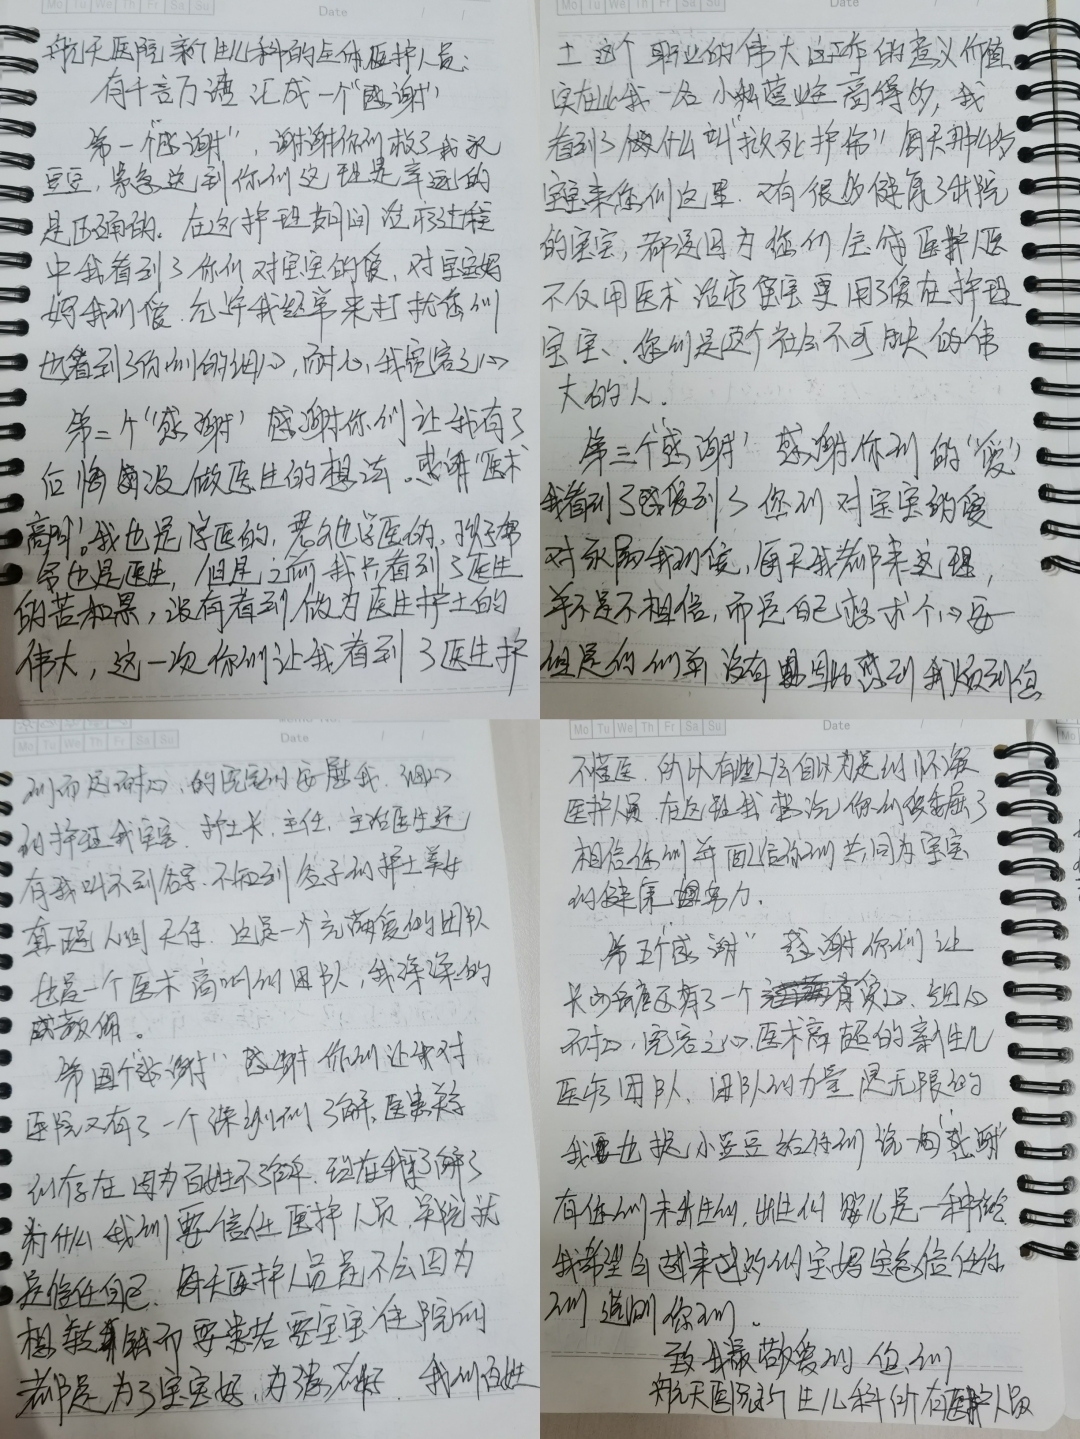 Date
航天医院新生儿科的全体医护人员：
有千言万语汇成一个"感谢"
第一个"感谢"，谢谢你们救了我家
豆豆，来到你们这里是幸运的
是正确的。在这护理期间治疗过程
中我看到了你们对宝宝的爱，对宝宝妈
妈我们爱，允许我经常来打扰您们
也看到了你们的细心，耐心，我宽容之心
第二个"感谢"感谢你们让我有了
后悔没做医生的想法。感谢"医术
高明"。我也是学医的，老公也学医的，
也是医生，但是之前我只看到了医生
的苦和累，没有看到做为医生护士的
伟大，这一次你们让我看到了医生护
Mo Tu We Th Fr Sa Su
Date
士这个职业的伟大这工作的意义价值
实在比我一名小私营业主高得多，我
看到了什么叫"救死护伤"每天那么多
宝宝来您们这里，又有很多健康了出院
的宝宝，都是因为你们全体医护人医
不仅用医术治疗宝宝更用了爱在护理
宝宝、您们是这个社会不可缺的伟
大的人.
第三个"感谢"感谢你们的"爱"
我看到了感受到了您们对宝宝的爱
对家属我们爱，每天我都来这里，
并不是不相信，而是自己想求个心安
但是你们并没有因此感到我烦到但
Mo Tu We Th Fr Sa Su
Date
们而是耐心、的安慰我. 细心
的护理我宝宝、护士长、主任、主治医生还
有我叫不到名字、不知到名子的护士美女
真是人间天使. 这是一个充满爱的团队
也是一个医术高明的团队，我深深的
佩。
第四个"感谢"感谢你们让我对
医院又有了一个深刻的了解、医患关系
的存在因为百姓不了解. 现在我了解了
为什么我们要信任医护人员，来院就
是信任自己. 每天医护人员是不会因为
想钱而要患者要宝宝住院的
都是为了宝宝好，为. 我们百姓
Mo Tu We Th Fr Sa Su
Date
不懂医. 所以有些人会自以为是的怀疑
医护人员. 在这里我想说你们受委屈了
相信你们并配合你们共同为宝宝
的健康努力.
第五个"感谢"感谢你们让
还有了一个有爱心、细心
耐心，宽容之心、医术高超的新生儿
医疗团队、团队的力量是无限的
我也抱小豆豆给你们说一句"感谢"
有你们未出生的，出生的婴儿是一种
我希望越来越多的宝妈宝爸信任你
们 你们。
致我最敬爱的 你们
航天医院新生儿科所有医护人员